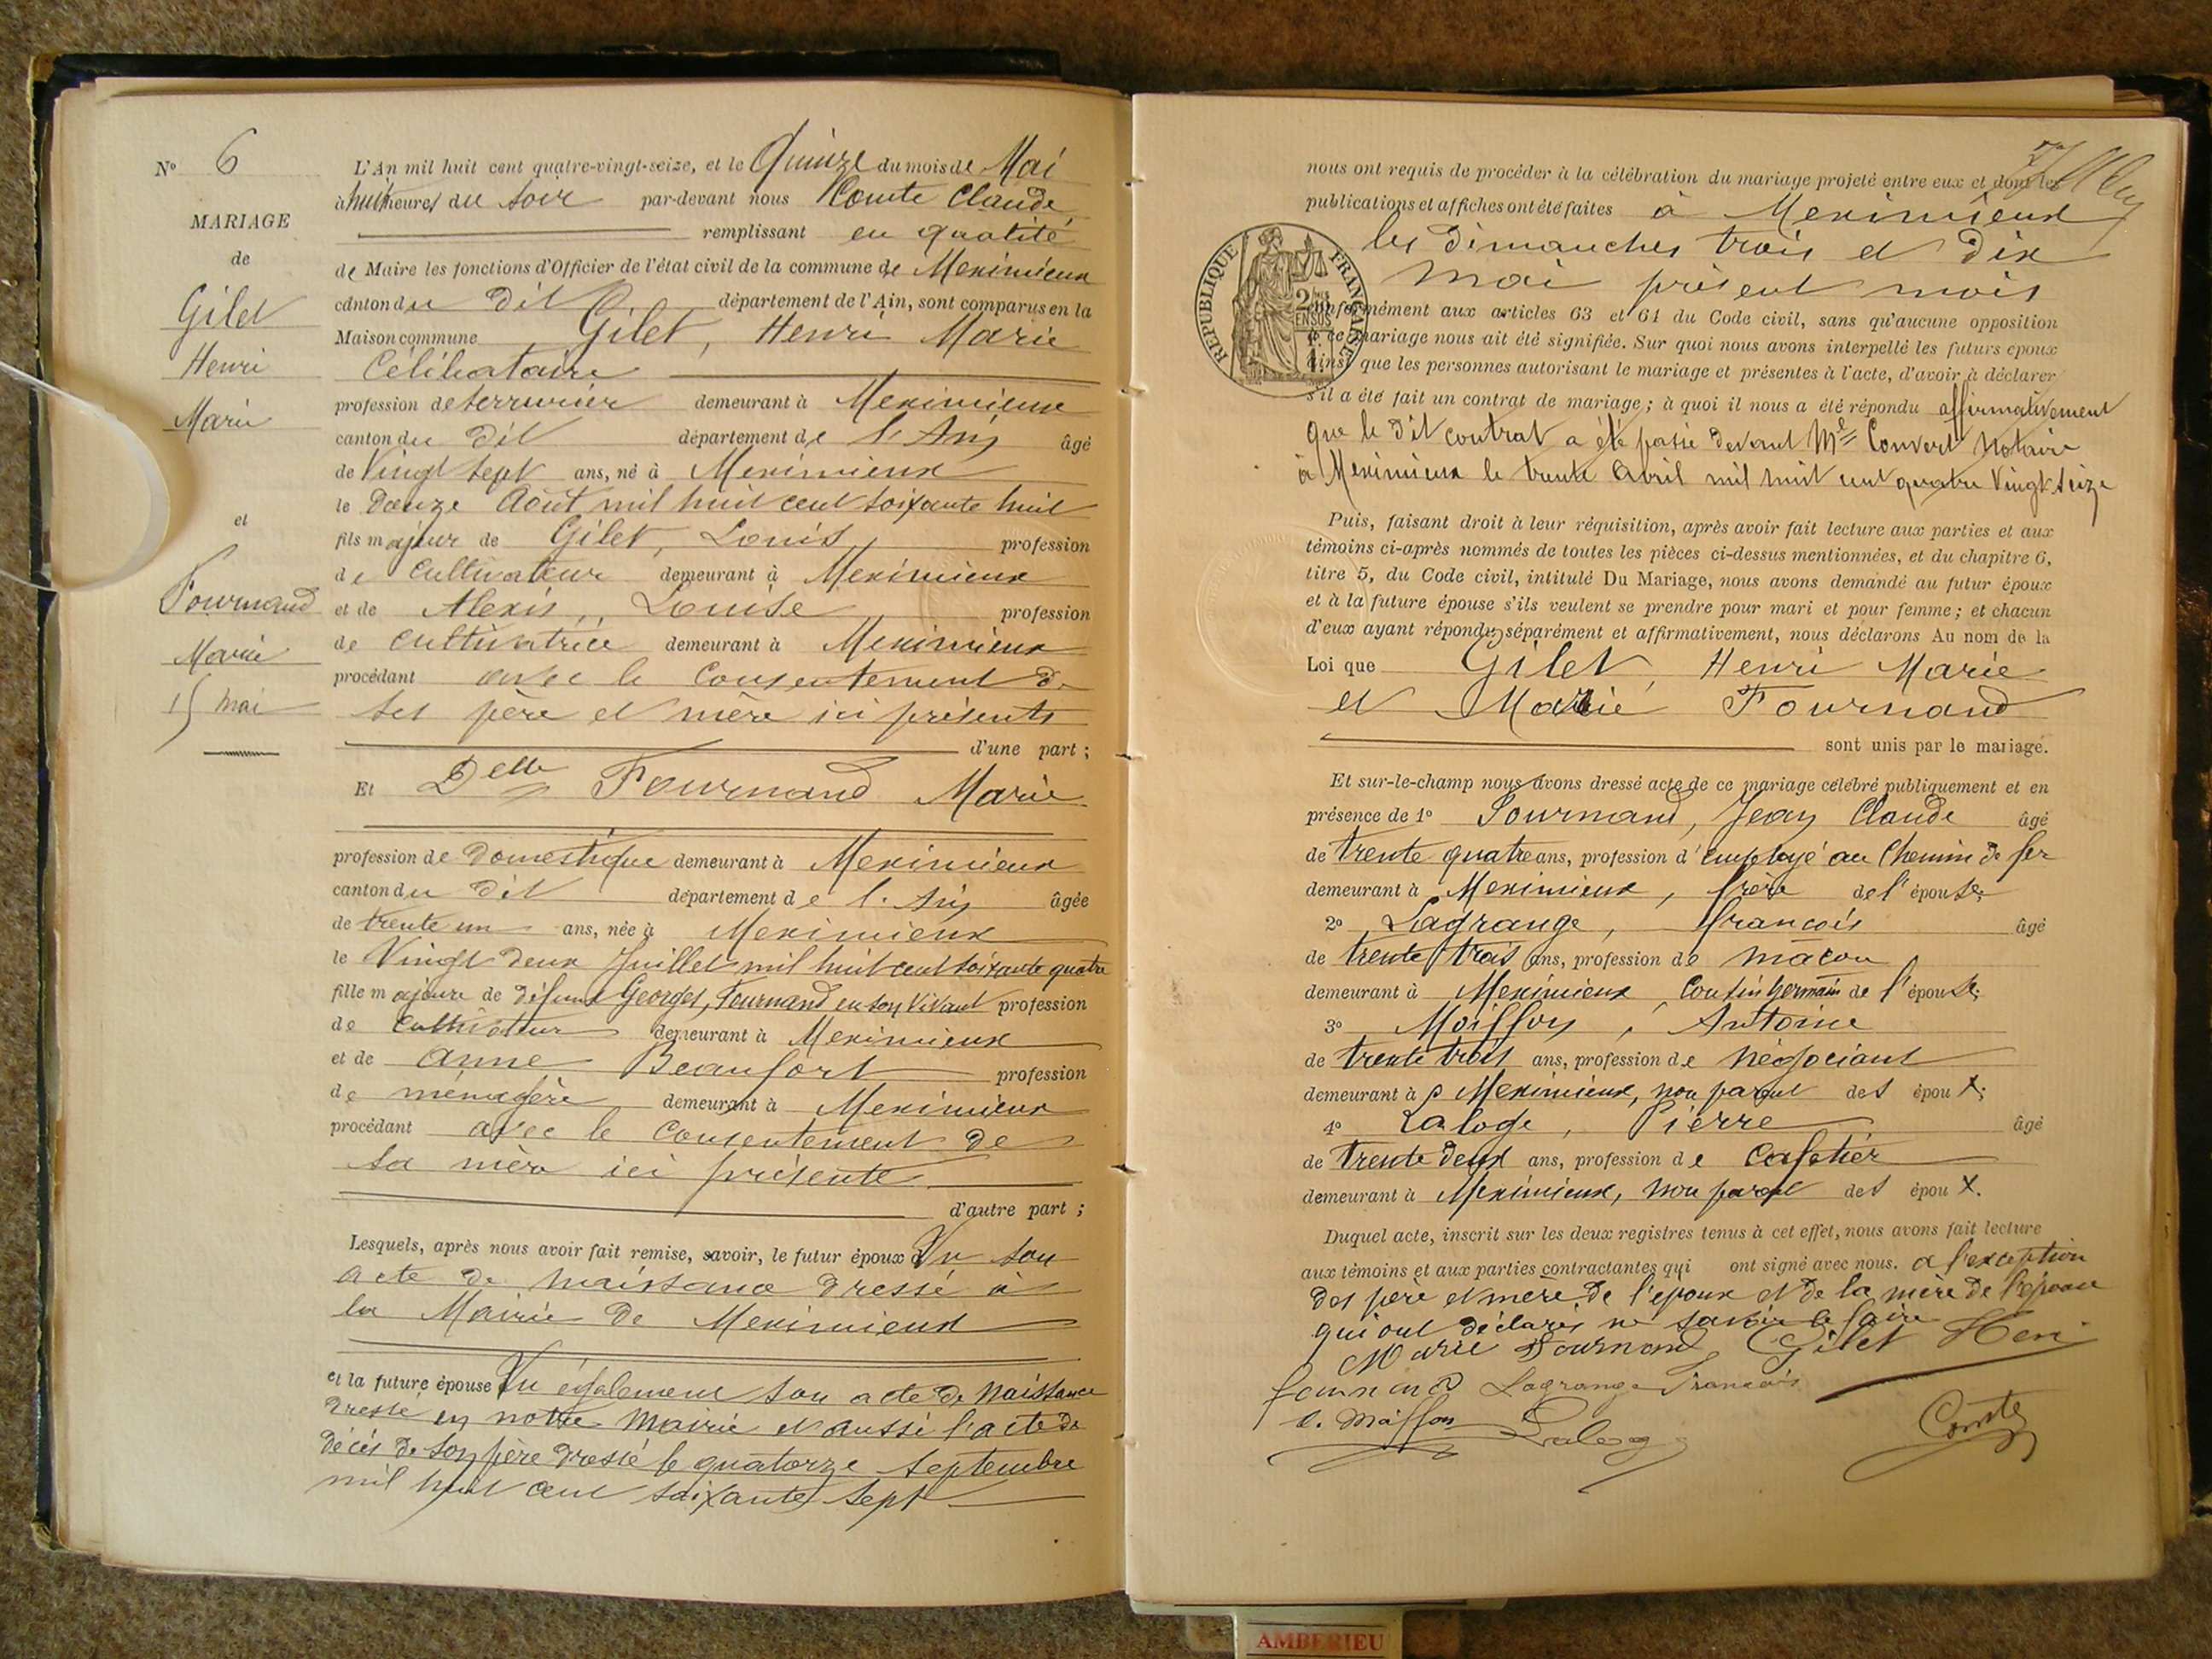 N° 6
MARIAGE
de
Gilet
Henri
Marie
et
Fournand
Marie
15 mai
L'An mil huit cent quatre-vingt-seize, et le Quinze du mois de Mai
à huit heures du soir par-devant nous Comte Claude,
remplissant en qualité
de Maire les fonctions d'Officier de l'état civil de la commune de Meximieux
canton du dit département de l'Ain, sont comparus en la
Maison commune Gilet, Henri Marie
Célibataire
profession de serrurier demeurant à Meximieux
canton du dit département de l'Ain âgé
de Vingt sept ans, né à Meximieux
le Douze Août mil huit cent soixante huit
fils majeur de Gilet, Louis, profession
de cultivateur demeurant à Meximieux
et de Alexis, Louise profession
de cultivatrice demeurant à Meximieux
procédant avec le consentement de
ses père et mère ici présents
d'une part ;
Et Delle Fournand Marie
profession de domestique demeurant à Meximieux
canton du dit département de l'Ain âgée
de trente un ans, née à Meximieux
le Vingt deux Juillet mil huit cent soixante quatre
fille majeure de défunt Georges, Fournand en son vivant profession
de cultivateur demeurant à Meximieux
et de Anne Beaufort profession
de ménagère demeurant à Meximieux
procédant avec le consentement de
sa mère ici présente
d'autre part ;
Lesquels, après nous avoir fait remise, savoir, le futur époux Vu son
acte de naissance dressé à
la Mairie de Meximieux
et la future épouse Vu également son acte de Naissance
dressé en notre Mairie et aussi l'acte de
décès de son père dressé le quatorze septembre
mil huit cent soixante sept
nous ont requis de procéder à la célébration du mariage projeté entre eux et dont les
publications et affiches ont été faites à Meximieux
les dimanches trois et dix
mai présent mois
REPUBLIQUE FRANÇAISE
conformément aux articles 63 et 64 du Code civil, sans qu'aucune opposition
à ce mariage nous ait été signifiée. Sur quoi nous avons interpellé les futurs époux
ainsi que les personnes autorisant le mariage et présentes à l'acte, d'avoir à déclarer
s'il a été fait un contrat de mariage ; à quoi il nous a été répondu affirmativement
que le dit contrat a été passé devant Me Convert Notaire
à Meximieux le trente Avril mil huit cent quatre Vingt Seize
Puis, faisant droit à leur réquisition, après avoir fait lecture aux parties et aux
témoins ci-après nommés de toutes les pièces ci-dessus mentionnées, et du chapitre 6,
titre 5, du Code civil, intitulé Du Mariage, nous avons demandé au futur époux
et à la future épouse s'ils veulent se prendre pour mari et pour femme ; et chacun
d'eux ayant répondu séparément et affirmativement, nous déclarons Au nom de la
Loi que Gilet, Henri Marie
et Marie Fournand
sont unis par le mariage.
Et sur-le-champ nous avons dressé acte de ce mariage célébré publiquement et en
présence de 1° Fournand, Jean Claude âgé
de trente quatre ans, profession d'employé au Chemin de fer
demeurant à Meximieux, frère de l'épouse;
2° Lagrange, François âgé
de trente trois ans, profession de maçon
demeurant à Meximieux Cousin germain de l'épouse;
3° Moiffon, Antoine
de trente trois ans, profession de négociant
demeurant à Meximieux, non parent des époux;
4° Laloge, Pierre âgé
de trente deux ans, profession de cafetier
demeurant à Meximieux, non parent des époux.
Duquel acte, inscrit sur les deux registres tenus à cet effet, nous avons fait lecture
aux témoins et aux parties contractantes qui ont signé avec nous. à l'exception
des père et mère de l'époux et de la mère de l'épouse
qui ont déclaré ne savoir le faire
Marie Fournand Gilet Henri
fournand Lagrange François
A. Moiffon Laloge Comte
AMBERIEU